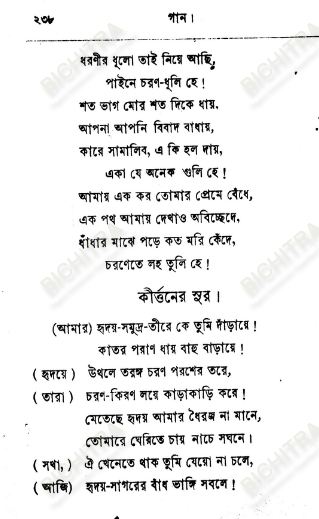 ২৩৮ গান।
ধরণীর ধূলো তাই নিয়ে আছি,
পাইনে চরণ-ধূলি হে!
শত ভাগ মোর শত দিকে ধায়,
আপনা আপনি বিবাদ বাধায়,
কারে সামালিব, এ কি হল দায়,
একা যে অনেক গুলি হে!
আমায় এক কর তোমার প্রেমে বেঁধে,
এক পথ আমায় দেখাও অবিচ্ছেদে,
ধাঁধার মাঝে পড়ে কত মরি কেঁদে,
চরণেতে লহ তুলি হে!
কীর্ত্তনের সুর।
(আমার) হৃদয়-সমুদ্র-তীরে কে তুমি দাঁড়ায়ে!
কাতর পরাণ ধায় বাহু বাড়ায়ে!
(হৃদয়ে) উথলে তরঙ্গ চরণ পরশের তরে,
(তারা) চরণ-কিরণ লয়ে কাড়াকাড়ি করে!
মেতেছে হৃদয় আমার ধৈরজ না মানে,
তোমারে ঘেরিতে চায় নাচে সঘনে।
(সখা,) ঐ খেনেতে থাক তুমি যেয়ো না চলে,
(আজি) হৃদয়-সাগরের বাঁধ ভাঙ্গি সবলে!
BICHITRA